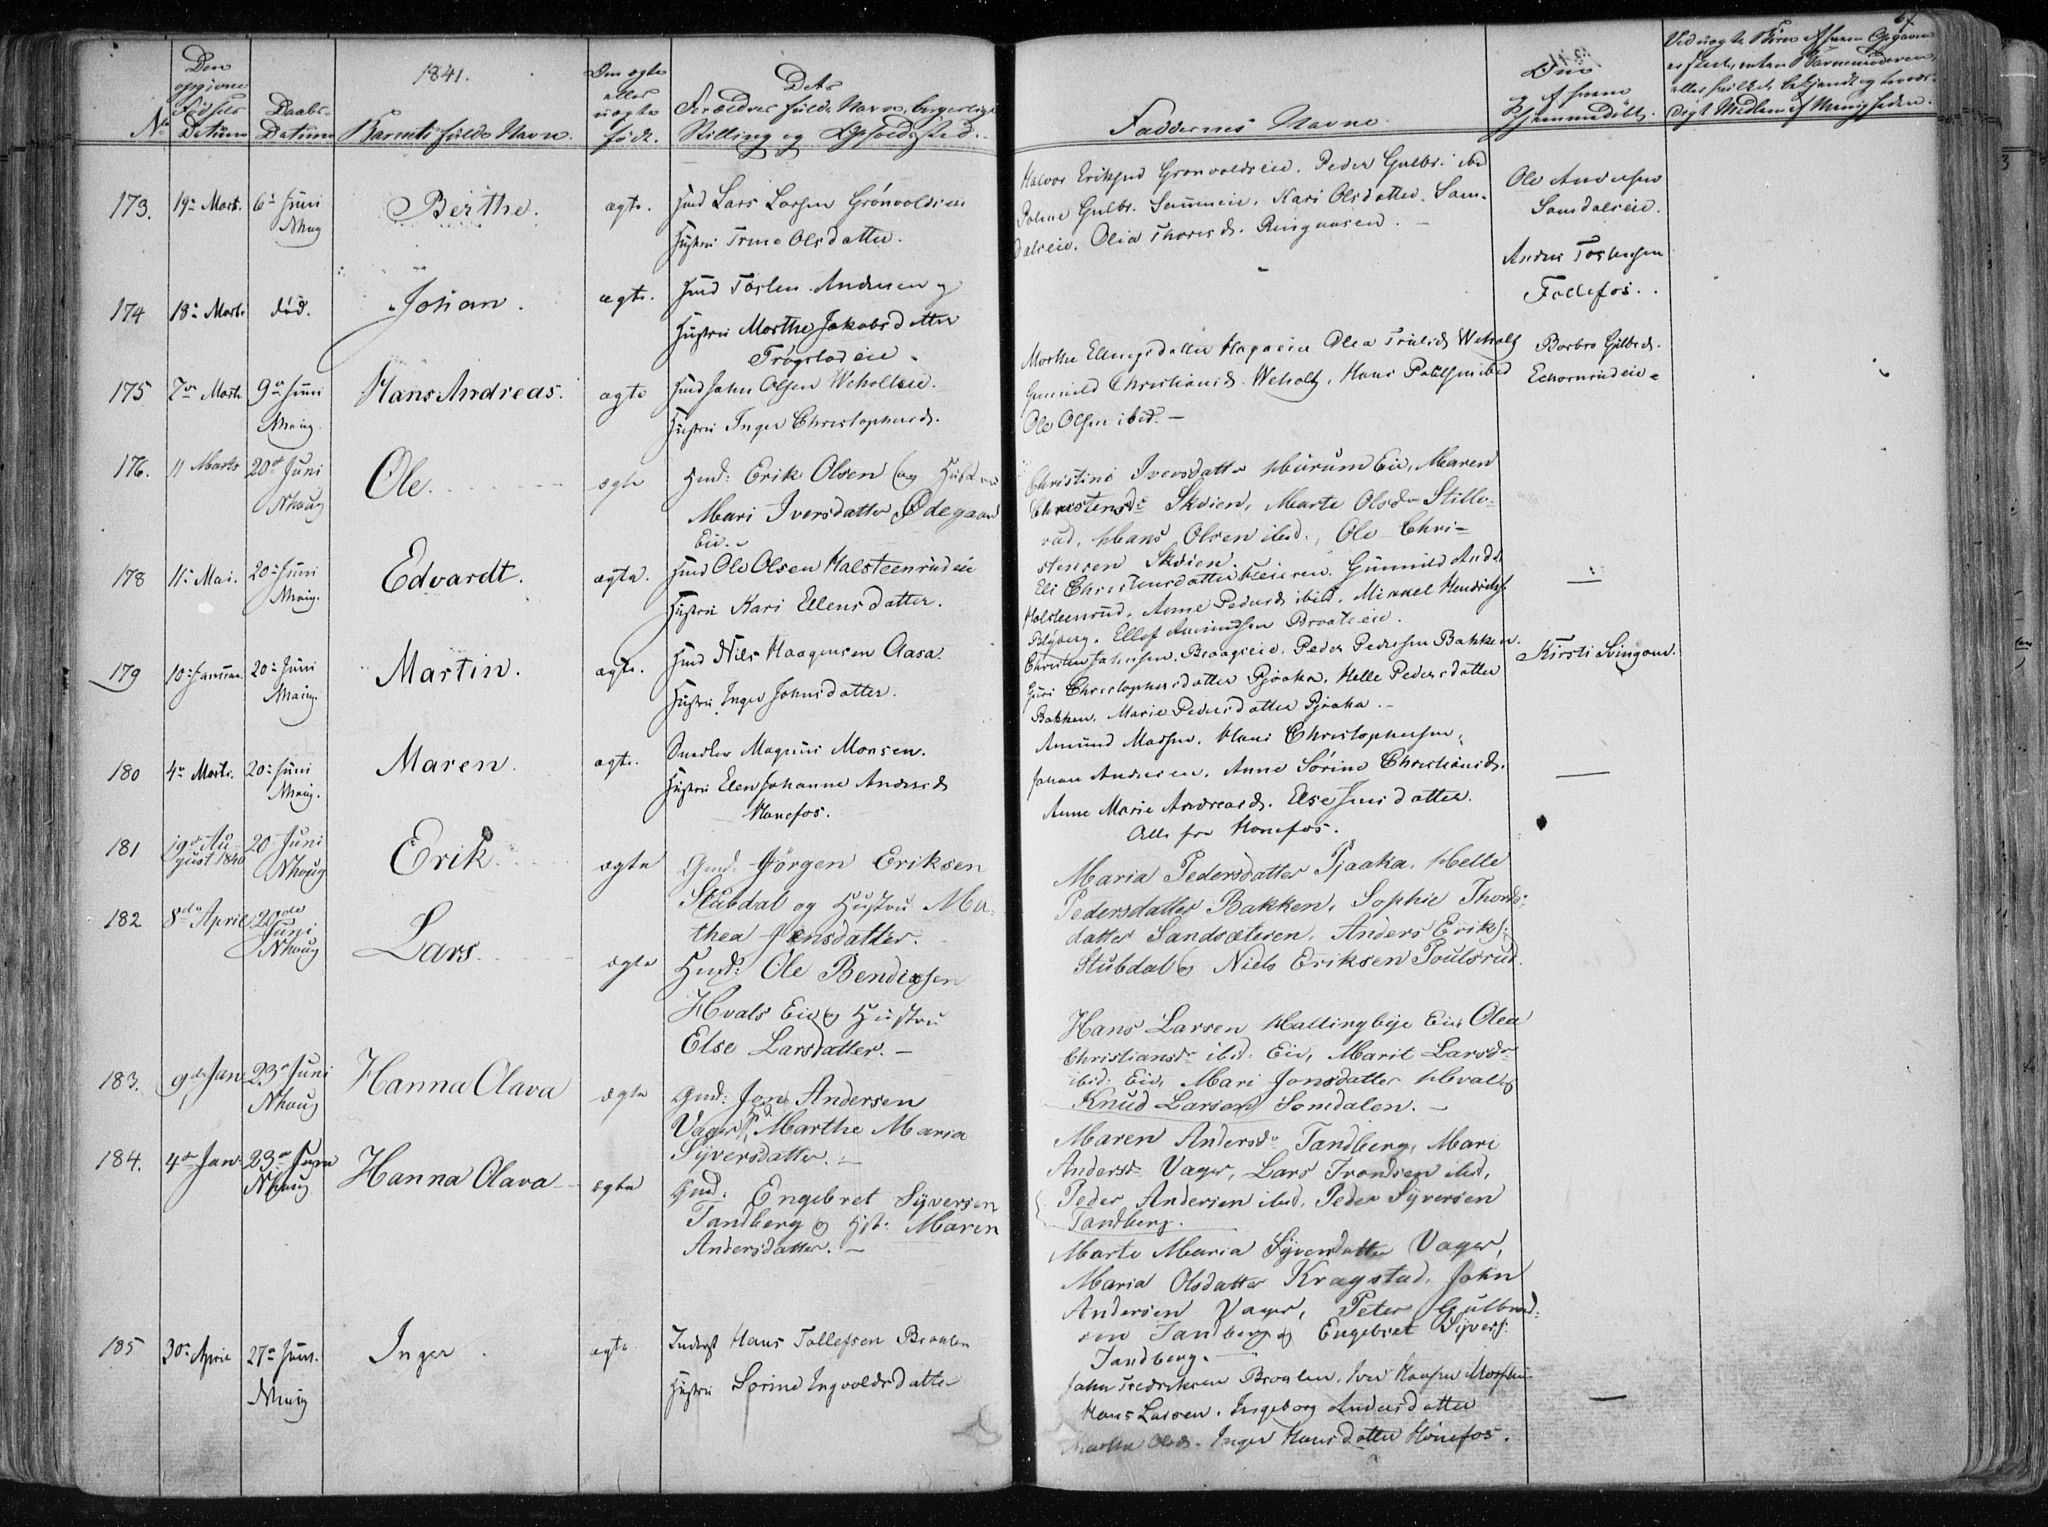 67
1841.
Den
opgivne
Fødsels
Datum
No
Daabs-
Datum
Barnets fulde Navn.
Om ægte
eller
uægte
født.
Dets
Forældres fulde Navne, borgerlige
Stilling og Opholdssted.
Faddernes Navne.
Om
og af hvem
hjemmedöbt.
Ved uægte Börn af hvem Opgaven
er skeet, enten
173. 19de Mart. 6te Juni
Nhoug
Berthe.
ægte.
Huusmd Lars Larsen Grönvoldseie
Hustru Trine Olsdatter.
Halvor Eriksen Grønvoldseie, Peder Gulbr. ibid
Gulbr. Kari Olsdatter Som-
dalseie. Olia Thoresd. Ringaasen.
Ole Andersen
Somdalseie.
174 18de Marts død.
Johan.
ægte.
Huusmd Tosten Andersen og
Hustru Marthe Jakobsdatter
Trögstadeie.
Anders Tostensen
Follefos.
175 7de Marts 9de Juni
Nhoug.
Hans Andreas.
ægte
Huusmd John Olsen Weholtseie.
Hustru Inger Christophersd.
Marthe Ellingsdatter Hagaeie Olea Trulsd Weholt
Gunnild Christiansd. Weholt, Hans Paulsen ibid
Ole Olsen ibid. —
Barbro Gulbrd.
Echornrudeie
176. 11 Marts 20de Juni
Nhoug
Ole.
ægte
Hmd: Erik Olsen og Hustru
Mari Iversdatter Ødegaard
Eie.
Christine Iversdatter Hurum Eie, Maren
Christensdr Skoien, Marte Olsdr Stille-
rud, Hans Olsen ibid., Ole Chri-
stensen Skoien.
178 11te Mai. 20de Juni
Nhoug.
Edvardt.
ægte.
Huusmd Ole Olsen Halsteenrudeie
Hustru Kari Ellensdatter.
Eli Christensdatter Gunnild Andd.
Halsteenrud, Anne Pedersd ibid, Mikkel Hendriks.
Blyberg, Ellef Amundsen Braateeie.
—
179 10de Januar 20de Juni
Nhoug.
Martin.
ægte.
Huusmd Niels Haagensen Aasa.
Hustru Inger Johnsdatter.
Christen Johnsen, Peder Pedersen Bakken.
Guri Christophersdatter Pjaaka, Helle Pedersdatter
Bakken, Marie Pedersdatter Pjaaka.
Kirsti
180 4de Marts. 20de Juni
Nhoug.
Maren.
ægte.
Snedker Magnus Monsen.
Hustru Elen Johanne Andersd
Hønefos.
Amund Hans Christophersen,
Johan Andersen, Anne Sörine Christiansd.
Anne Marie Andreasd. Else Jensdatter.
Alle fra Hønefos.
—
181 19de Au-
gust 1840 20 Juni
Nhoug
Erik
ægte
Gmd: Jörgen Eriksen
Stubdal og Hustru Ma-
thea Jensdatter.
Maria Pedersdatter Pjaaka, Helle
Pedersdatter Bakken, Sophie Thords-
datter Sandsæteren, Anders Eriks:
Stubdal og Niels Eriksen Poulsrud.
182 8de April 20de
Juni
Nhoug
Lars
ægte
Hmd: Ole Bendixsen
Hvals Eie og Hustru
Else Larsdatter. —
Hans Larsen Hallingbye Eie, Olea
Christiansdr ibid: Eie, Marit Larsdr
ibid: Eie, Mari Jonsdatter Hval og
Knud Larsen Somdalen. —
183. 9de Jan 23de Juni
Nhoug
Hanna Olava
ægte
Gmd: Jon Andersen
Vager, Marthe Maria
Syversdatter. —
Maren Andersdr Tandberg, Mari
Andersdr Vager, Lars Trondsen ibid,
Peder Andersen ibid, Peder Syversen
Tandberg.
184. 4de Jan: 23de Juni
Nhoug
Hanna Olava
ægte
Gmd: Engebret Syversen
Tandberg og Hst: Maren
Andersdatter. —
Marte Maria Syversdatter Vager,
Maria Olsdatter Kragstad, John
Andersen Vager, Peter Gulbrand-
sen Tandberg og Engebret Syvers:
Tandberg.
185 30te April 27de Juni.
Nhoug
Inger
ægte.
Inderst Hans Tollefsen Braaten
Hustru Sörine Ingvoldsdatter
John Fredriksen Braaten, Iver Hansen
Hans Larsen, Ingeborg Andersdatter
Olsd. Inger Hansdatter Hønefos.
—